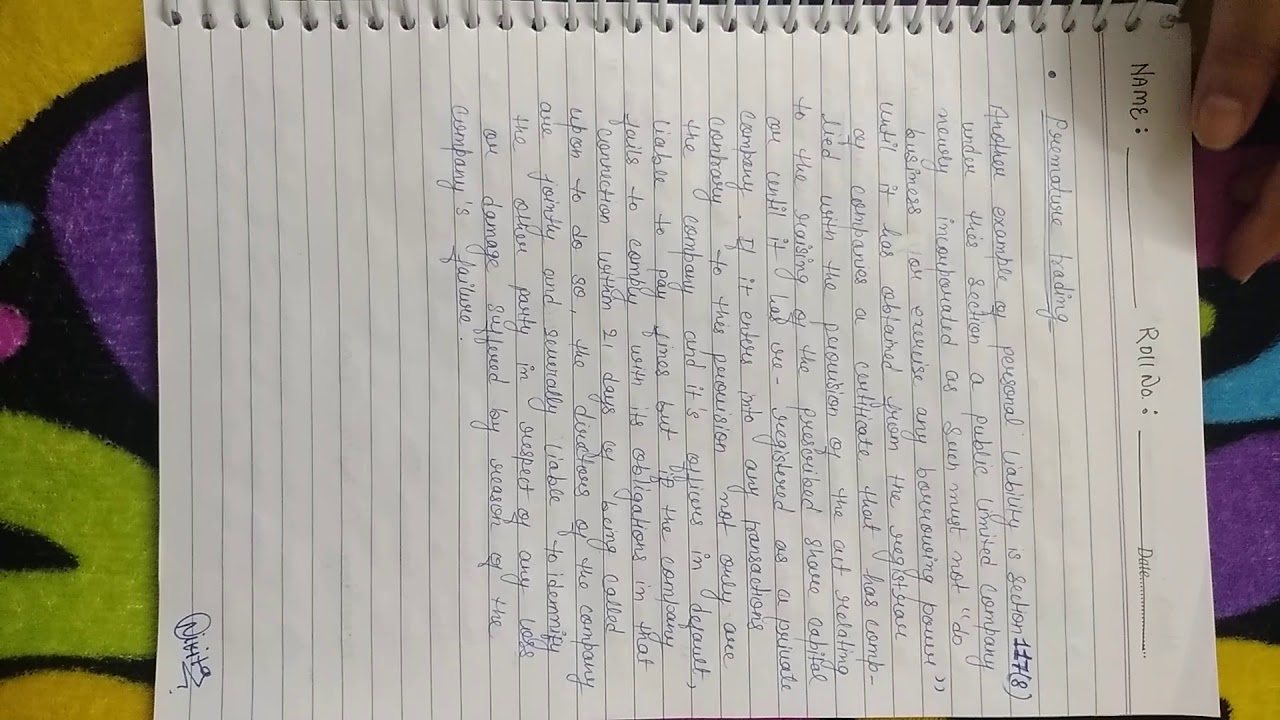 NAME: Roll No.: Date
• Premature trading
Another example of personal liability is section 117(8)
under this section a public limited company
newly incorporated as such must not "do
business or exercise any borrowing power"
until it has obtained from the registrar
of companies a certificate that has comp-
lied with the provision of the act relating
to the raising of the prescribed share capital
or until it has re-registered as a private
company. If it enters into any transactions
contrary to this provision not only are
the company and it's officers in default,
liable to pay fines but if the company
fails to comply with its obligations in that
connection within 21 days of being called
upon to do so, the directors of the company
are jointly and severally liable to idemnify
the other party in respect of any loss
or damage suffered by reason of the
company's failure.
Nikita